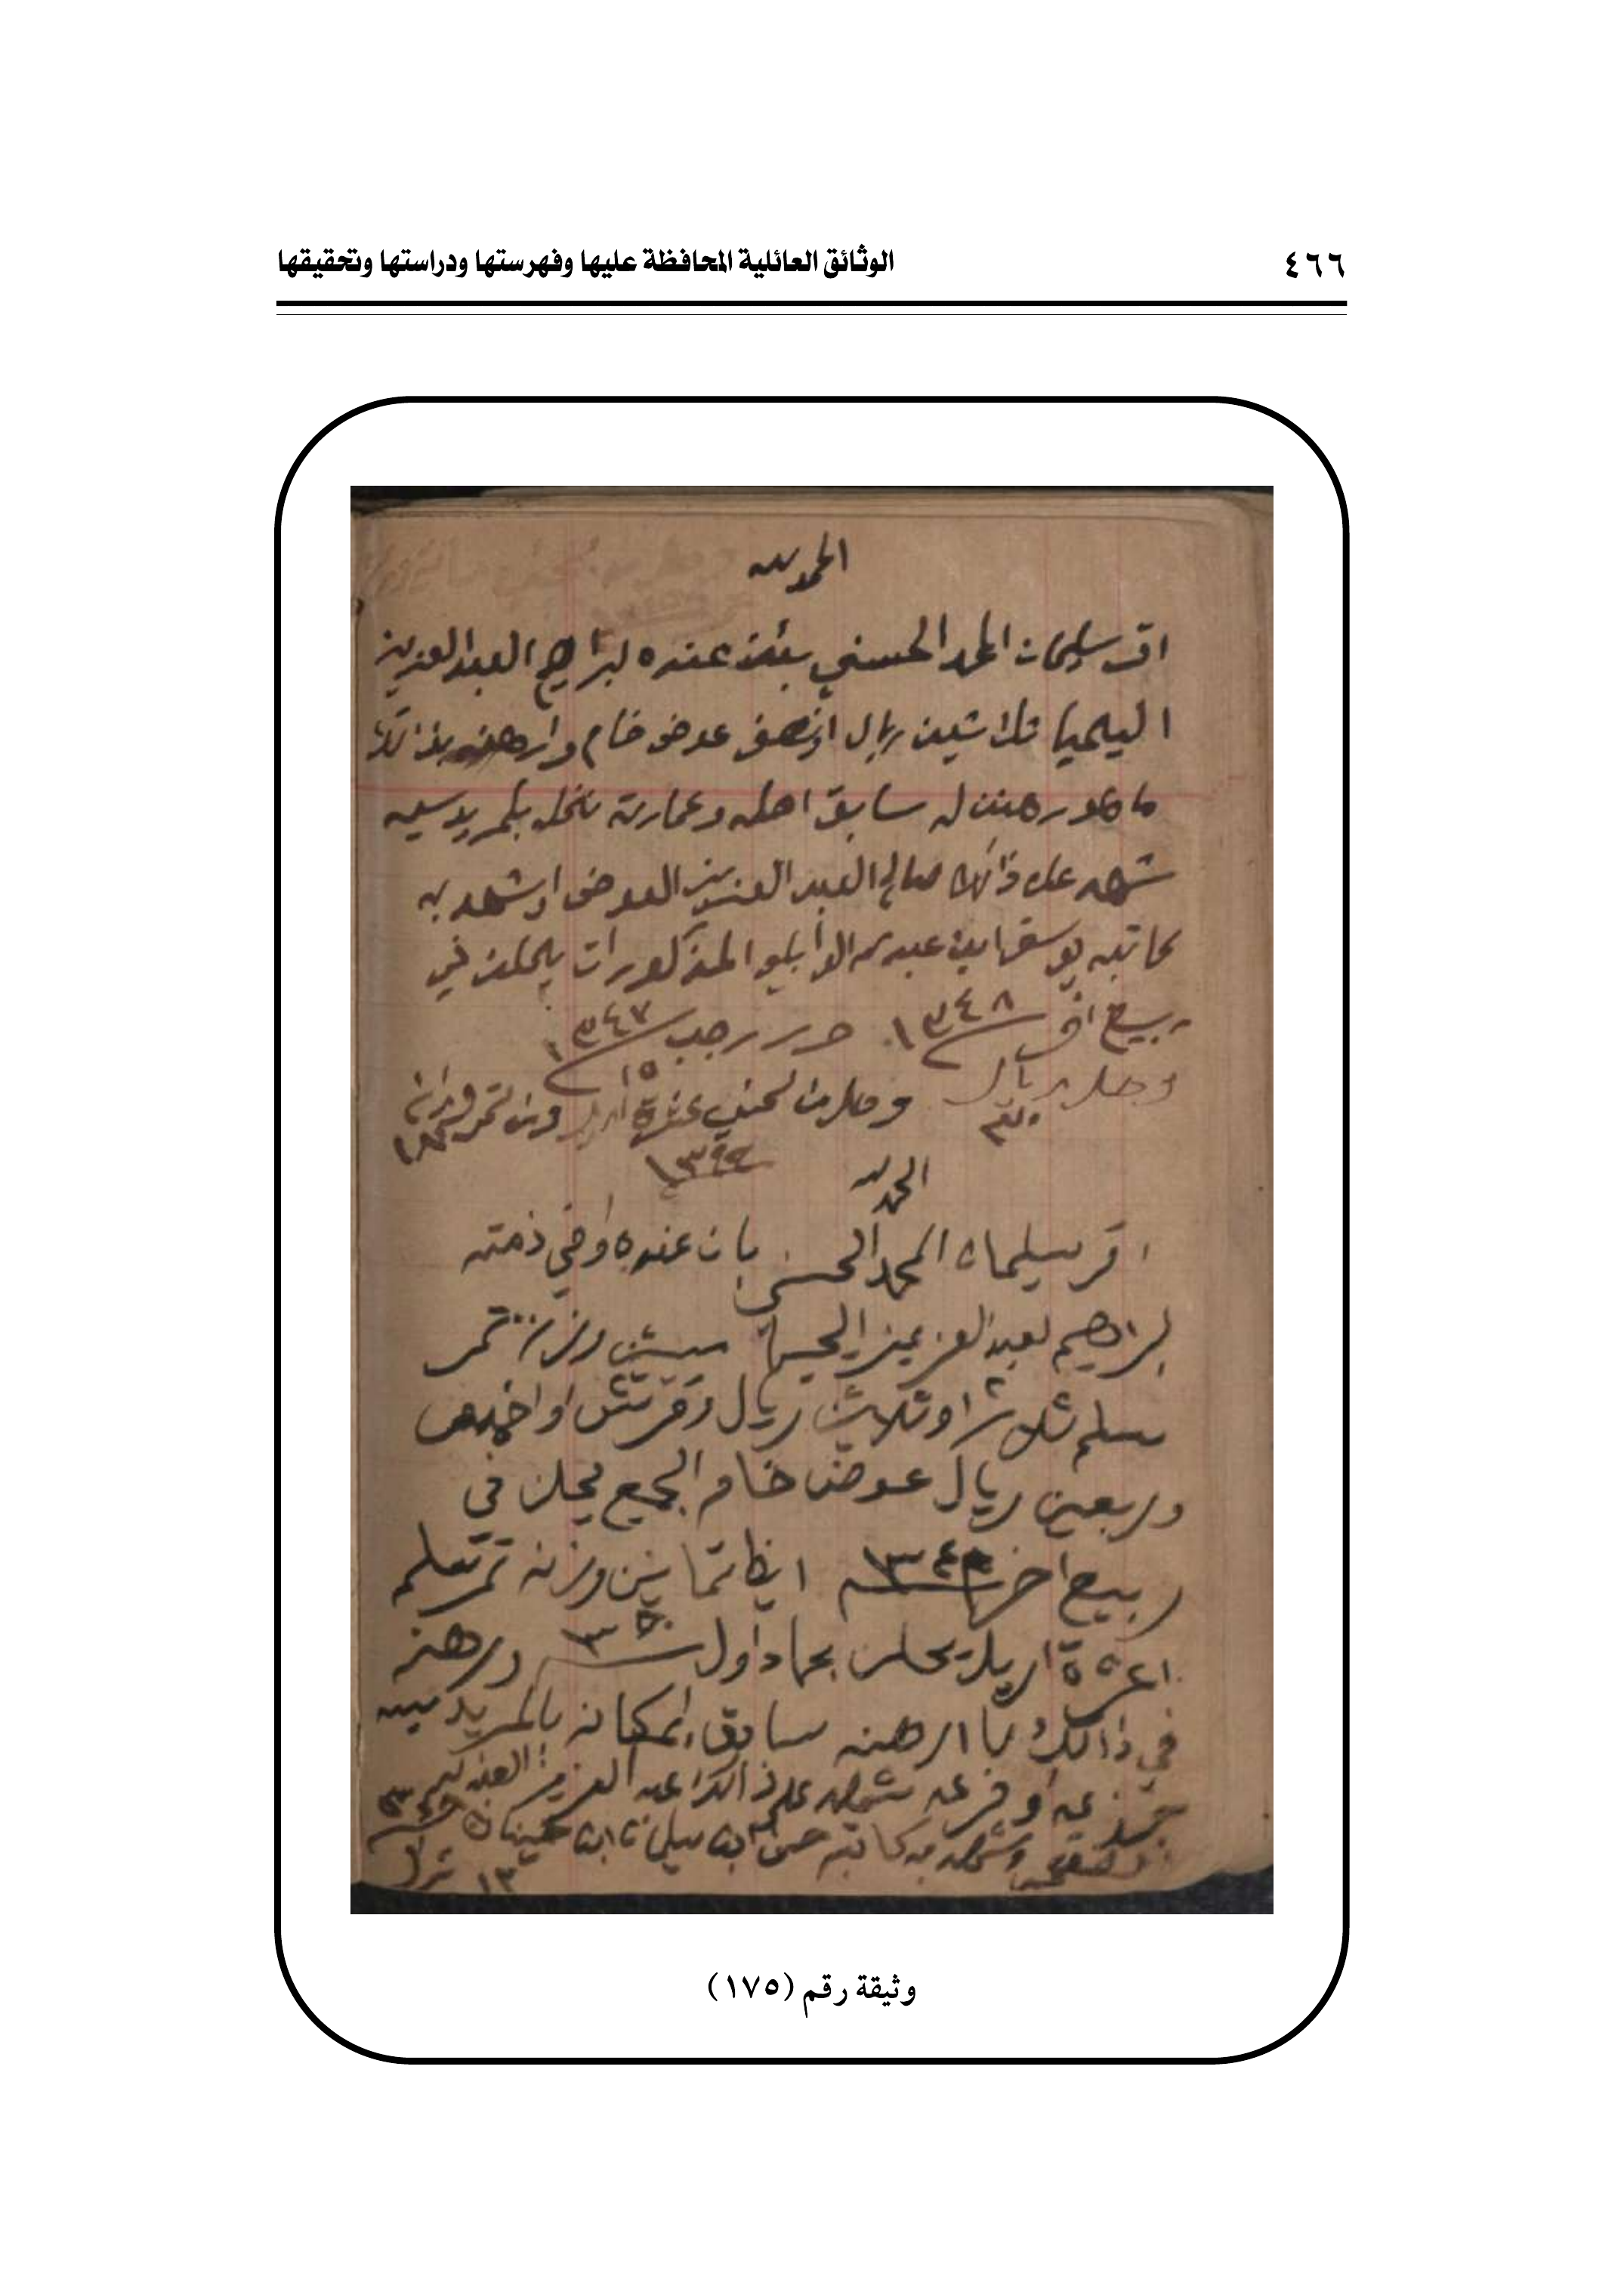 ٤٦٦
الوثائق العائلية المحافظة عليها وفهرستها ودراستها وتحقيقها
الحمد لله
اقر سليمان المحمد الحسني بئن عنده لبراهيم العبد العزيز
اليحيا ثلاثين ريال اونصف عوض خام وارهنه بذالك
ما هو رهنن له سابق اهله وعمارته نخله بلمريدسيه
شهد على ذالك صالح العبد العزيز العوض اوشهد به
كاتبه يوسف ابن عبدالله الوابلي والمذكورات يحلن في
ربيع اخر ١٣٤٨ حرر رجب ١٣٤٧
١٥
وصل ريال
٣٠
وصل من الحسني عشرة اريل ومن تمر
الحمد لله
اقر سليمان المحمد الحسني بان عنده اوفي ذمته
لبراهيم لعبد العزيز اليحيا ميتين وزنة تمر
سلم ثلاث اوثلاثين ريال وقرشين او اخمس
وربعين ريال عوض خام الجميع يحلن في
ربيع اخر ١٣٤٩ ايظا ثمانين وزنه تمر سلم
اعشرة اريل يحلن بجماد اول ٣٥٠ ورهنه
في ذالك ما ارهنه سابق المكانه بالمريدسيه
جذعه اوفرعه شهد على ذالك عبد العزيز
وشهد به كاتبه ابن سليمان ابن
١٣
وثيقة رقم (١٧٥)